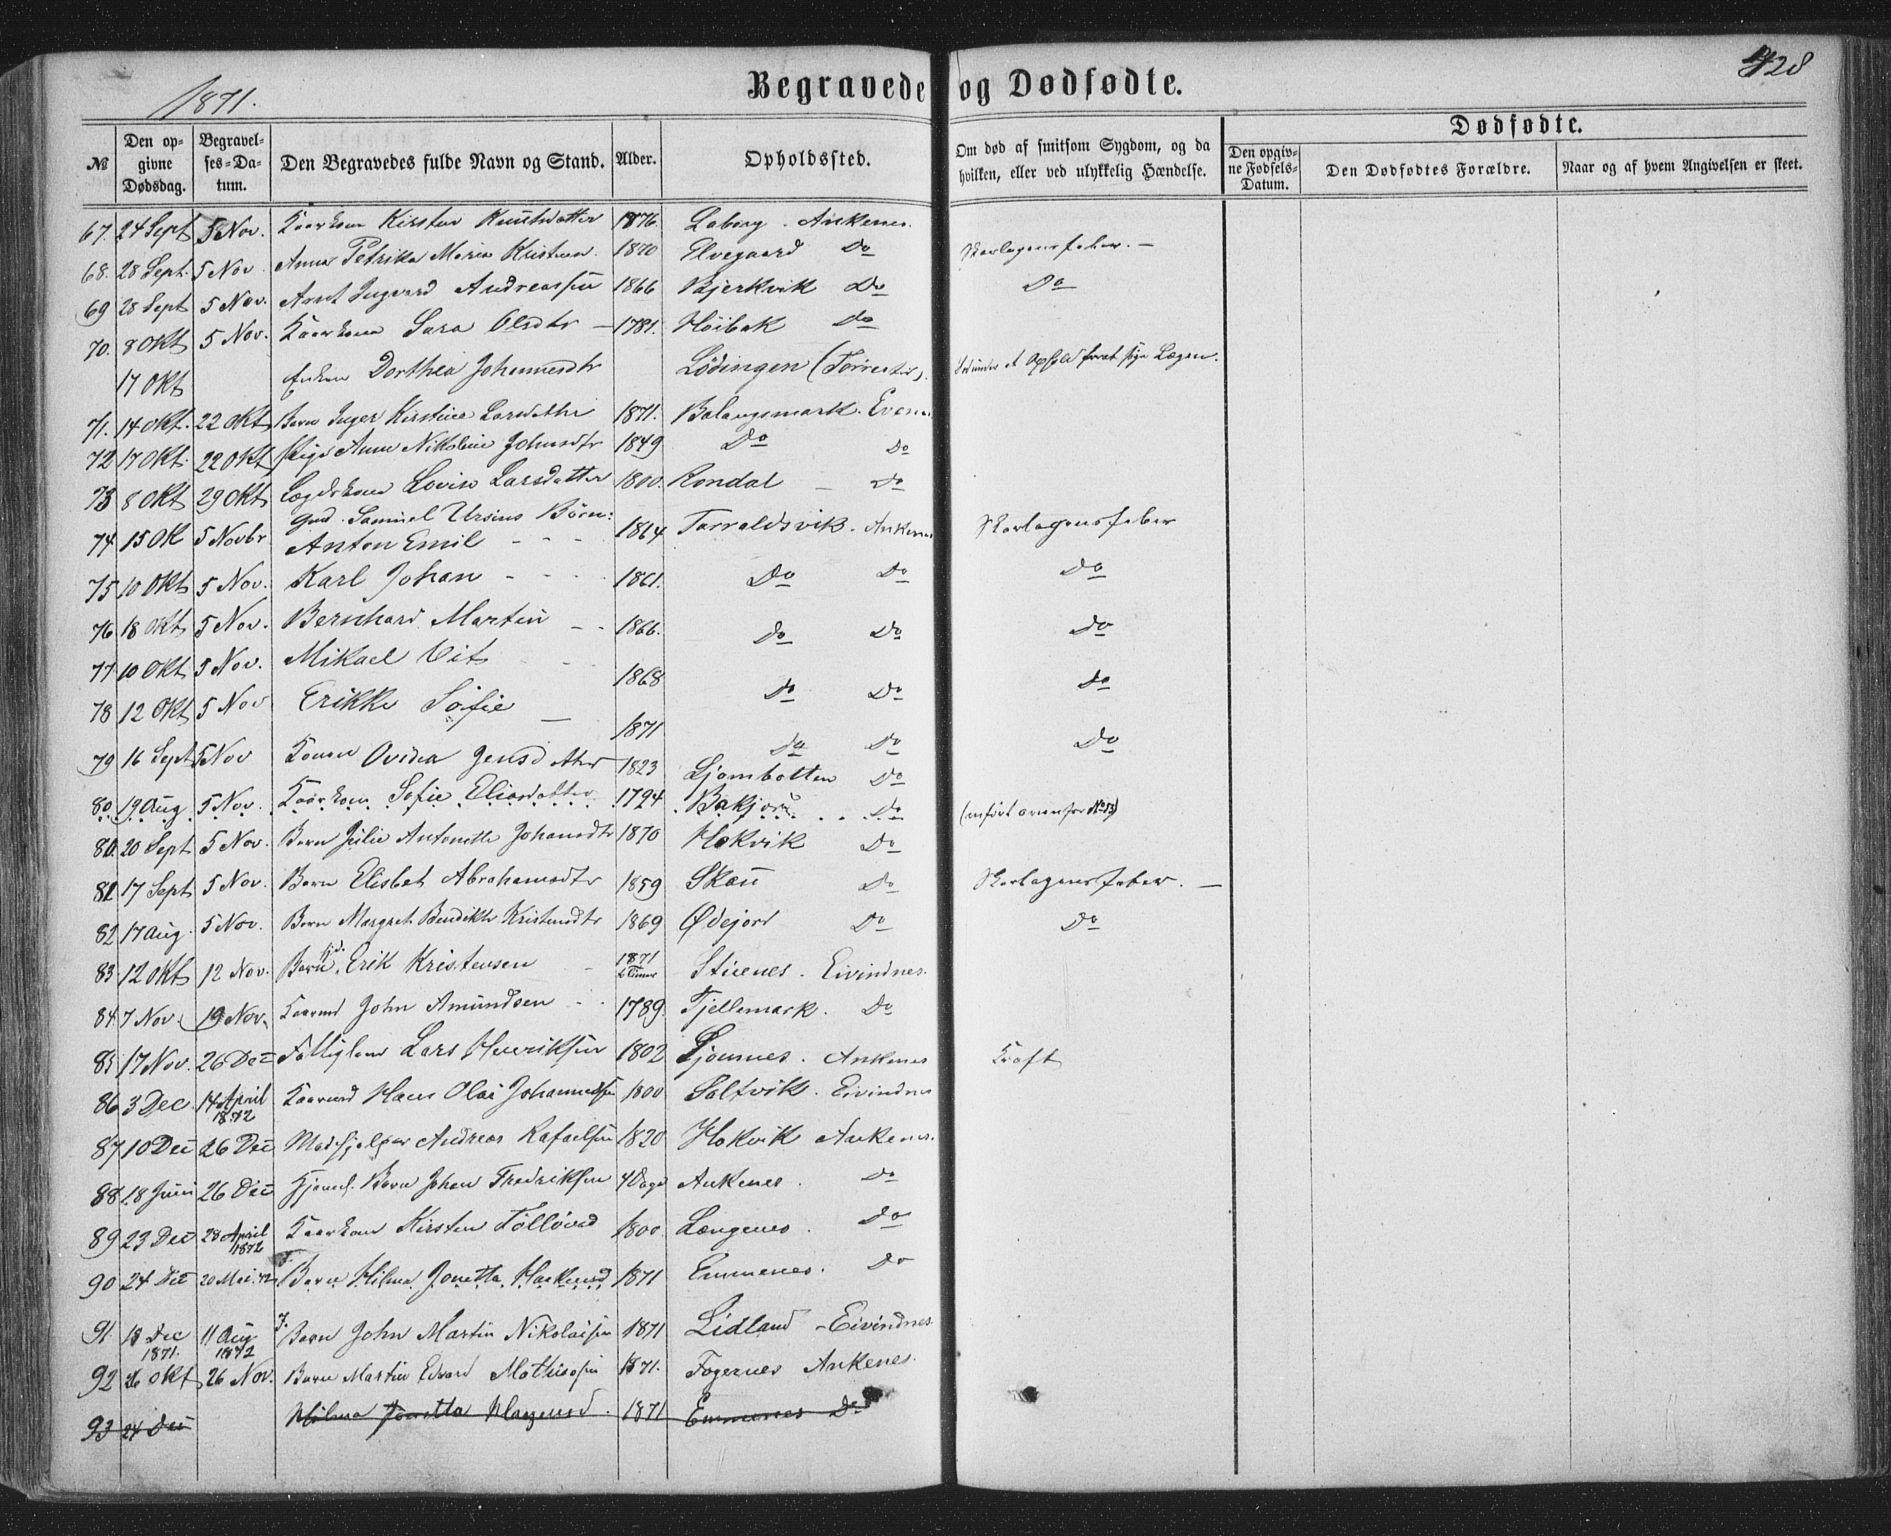 1871.
Begravede og Dødfødte.
428
№
Den opgivne Dødsdag.
Begravelses-Datum.
Den Begravedes fulde Navn og Stand.
Alder.
Opholdssted.
Om død af smitsom Sygdom, og da hvilken, eller ved ulykkelig Hændelse.
Dødfødte.
Den opgivne Fødsels-Datum.
Den Dødfødtes Forældre.
Naar og af hvem Angivelsen er skeet.
67. 24 Sept 5 Nov. Kaarkone Kirsten Knutsdatter 1876. Laberg. Ankenes.
68. 28 Sept. 5 Nov. Anna Petrika Maria Kristens. 1870 Elvegaard Do Skarlagensfeber. —
69 28 Sept 5 Nov. Arnt Ingvard Andreassen 1866 Bjerkvik Do Do
70. 8 Okt 5 Nov. Kaarkone Sara Olsdtr — 1781. Høibak Do
17 Okt Enken Dorthea Johannesdtr Lødingen
71. 14 Okt. 22 Okt Barn Inger Kirstine Larsdattr 1871. Balangsmark. Evenes
72 17 Okt. 22 Okt Pige Anne Nikoline Johnsdtr 1849 Do Do
73 8 Okt 29 Okt Lægdskone Lovise Larsdatter 1800. Rondal — Do
Gmd. Samuel Ursins Børn:
74 15 Ok 5 Novbr Anton Emil - - - 1864 Tarraldsvik. Ankenes Skarlagensfeber
75 10 Okt 5 Nov. Karl Johan - - - 1861. Do Do Do
76 18 Okt 5 Nov. Bernhard Martin - - 1866. Do Do Do
77 10 Okt 5 Nov. Mikael Vit - - 1868 Do Do Do
78 12 Okt 5 Nov Erikke Sofie — 1871 Do Do Do
79 16 Sept 5 Nov Konen Ovidia Jensdatter 1823 Ljombotten Do
80 19 Aug 5 Nov. Kaarkone Sofie Eliasdatter 1794 Bakjord Do (anført ovenfor No 53)
80. 20 Sept 5 Nov. Barn Julie Antonette Johansdtr 1870 Hokvik Do
81 17 Sept 5 Nov. Barn Elisbet Abrahamsdtr 1859 Skau Do Skarlagensfeber. —
82 17 Aug. 5 Nov. Barn Margret Bendikte Kristensdtr 1869 Ødejord Do Do
83 12 Okt 12 Nov. Barn Erik Kristensen - 1871 Stienes. Eivindnes.
84. 7 Nov. 19 Nov. Kaarmd John Amundsen - - 1789. Fjellemark. Do
85 17 Nov. 26 Dec Fattiglem Lars Henriksen 1802 Ljosnes. Ankenes Kræft
86 3 Dec 14 April 1872 Kaarmd Hans Olai Johannessen 1800 Saltvik. Eivindnes
87 10 Dec 26 Dec Andreas Rafaelsen 1820 Hokvik Ankenes.
88 18 Juni 26 Dec Hjemd. Barn Johan Fredriksen 4 Dage Ankenes. Do
89 23 Dec 28 April 1872 Kaarkone Kirsten 1800 Længenes. Do
90 24 Dec 20 Mai 72 Barn Hilma Jonetta Hakensd 1871 Emmenes. Do
91. 18 Dec 1871. 11 Aug 1872 Barn John Martin Nikolaisen 1871 Lidland - Eivindnes.
92 26 Okt 26 Nov. Barn Martin Edvard Mathisen 1871. Fagernes Ankenes.
93 24 Dec Hilma Jonetta Hagensd. 1871 Emmenes Do